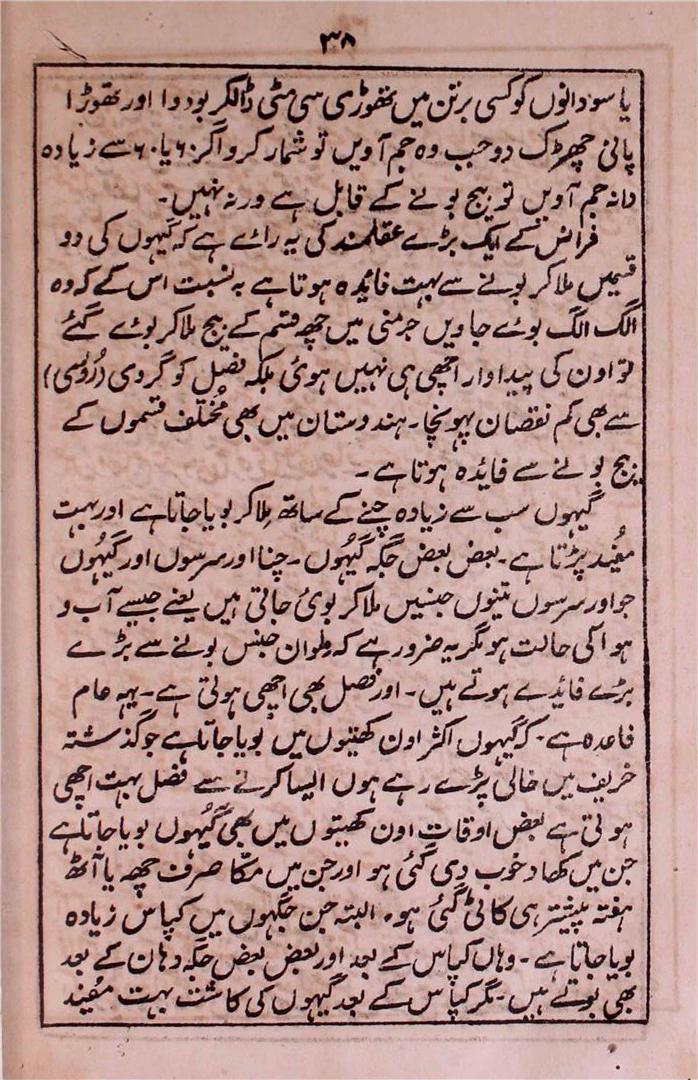 ۳۸
یا سو دانوں کو کسی برتن میں تھوڑی سی مٹی ڈالکر بو دو ا اور تھوڑا
پانی چھڑک دو جب وہ جم آویں تو شمار کرو اگر ۶۰ یا ۶۰ سے زیادہ
دانہ جم آویں تو بیج بونے کے قابل ہے ورنہ نہیں۔
فرانس کے ایک بڑے عقلمند کی یہ رائے ہے کہ گیہوں کی دو
قسمیں ملا کر بونے سے بہت فایٔدہ ہوتا ہے بہ نسبت اس کے کہ وہ
الگ الگ بوئے جاویں جرمنی میں چھ قسم کے بیج ملا کر بوئے گئے
تو اون کی پیداوار اچھی ہی نہیں ہوئی بلکہ فصل کو گروی (رُوسی)
سے بھی کم نقصان پہونچا۔ ہندوستان میں بھی مُختلف قسموں کے
بیج بونے سے فایٔدہ ہوتا ہے۔
گیہوں سب سے زیادہ چنے کے ساتھ مِلا کر بویا جاتا ہے اور بہت
مفُید پڑتا ہے۔ بعض بعض جگہ گیہُوں۔ چنا اور سرسوں اور گیہُوں
جو اور سرسوں تینوں جنسیں ملا کر بوئی جاتی ہیں یعنے جیسے آب و
ہوا کی حالت ہو مگر یہ ضرور ہے کہ ملوان جنس بونے سے بڑے
بڑے فایٔدے ہوتے ہیں۔ اور فصل بھی اچھی ہوتی ہے۔ یہہ عام
قاعدہ ہے۔ کہ گیہوں اکثر اون کھیتوں میں بویا جاتا ہے جو گذشتہ
خریف میں خالی پڑے رہے ہوں ایسا کرنے سے فصل بہت اچھی
ہوتی ہے بعض اوقات اون کھیتوں میں بھی گیہُوں بویا جاتا ہے
جن میں کھاد خوب دی گئی ہو اور جن میں مکّا صرف چھہ یا آٹھ
ہفتہ پیشتر ہی کاٹی گئی ہو۔ البتہ جن جگہوں میں کپاس زیادہ
بویا جاتا ہے۔ وہاں کپاس کے بعد اور بعض بعض جگہ دہان کے بعد
بھی بوتے ہیں۔ مگر کپاس کے بعد گیہوں کی کاشت بہت مفُید